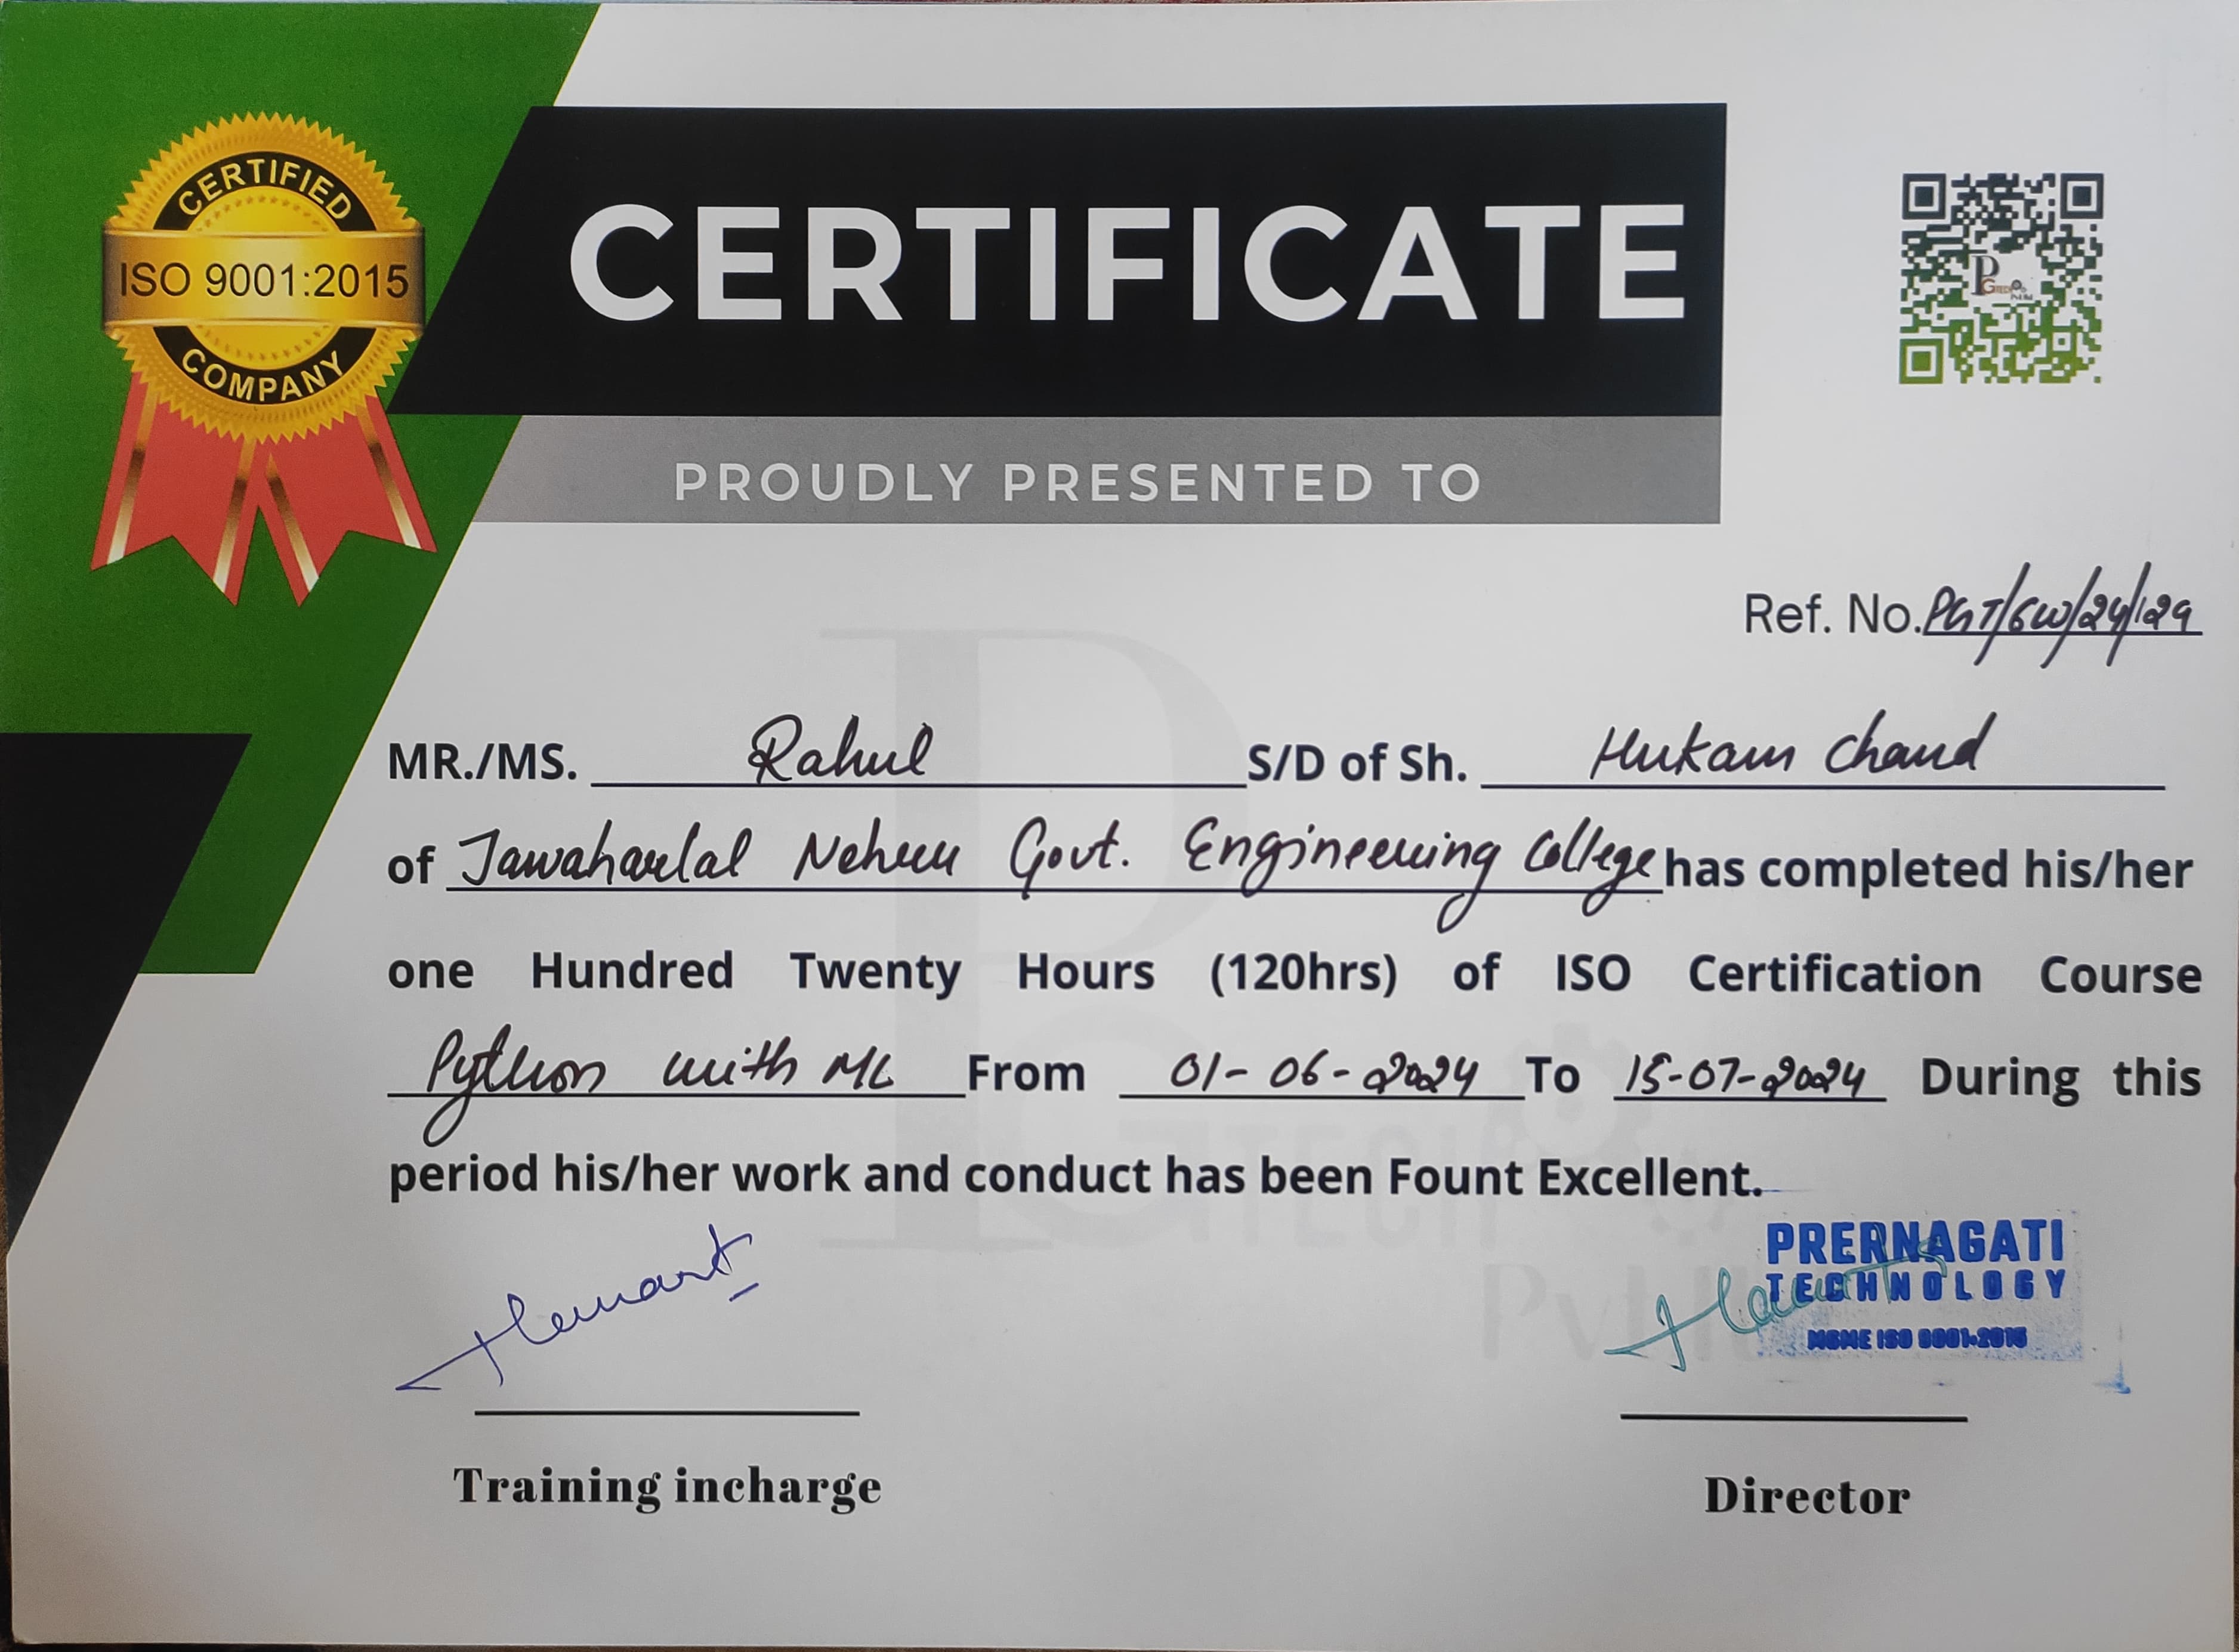 CERTIFIED
ISO 9001:2015
COMPANY
CERTIFICATE
PROUDLY PRESENTED TO
Ref. No. PGT/SW/24/129
MR./MS. Rahul S/D of Sh. Hukam Chand
of Jawaharlal Nehru Govt. Engineering College has completed his/her
one Hundred Twenty Hours (120hrs) of ISO Certification Course
Python with ML From 01-06-2024 To 15-07-2024 During this
period his/her work and conduct has been Fount Excellent.
Hemant
PRERNAGATI
TECHNOLOGY
MSME ISO 9001:2015
Training incharge
Director